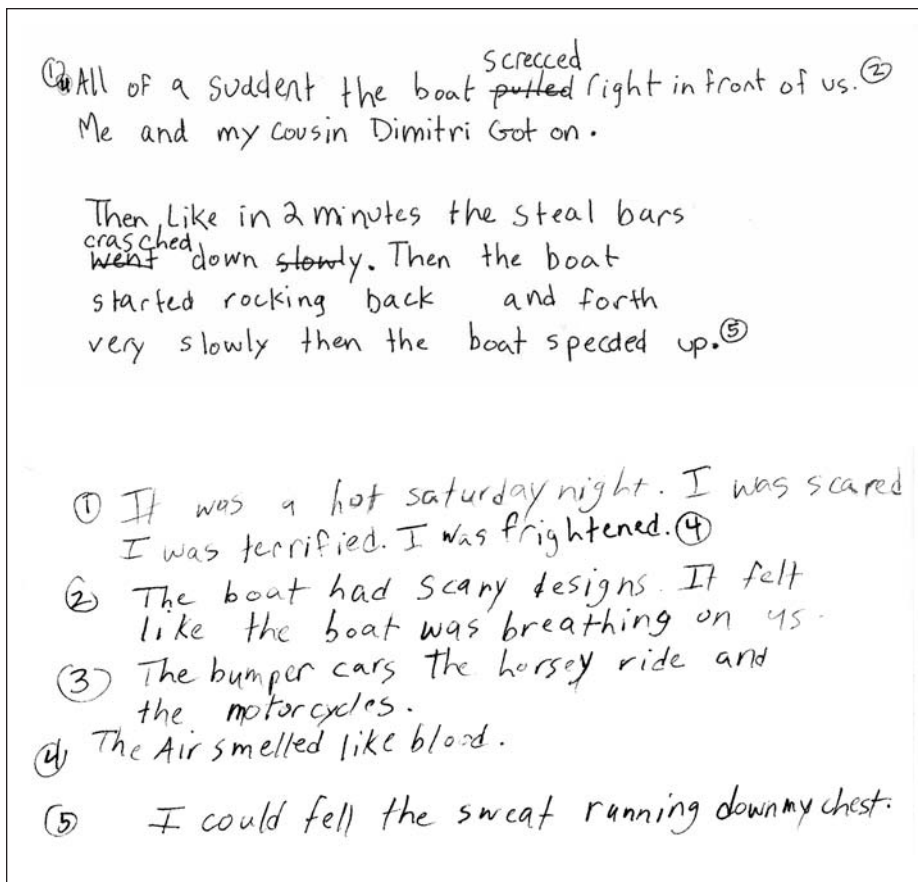 ① ④ All of a suddent the boat screcced pulled right in front of us. ②
Me and my cousin Dimitri Got on.
Then, Like in 2 minutes the steal bars
crasched went down slowly. Then the boat
started rocking back and forth
very slowly then the boat specded up. ⑤
① It was a hot saturday night. I was scared
I was terrified. I was frightened. ④
② The boat had scary designs. It felt
like the boat was breathing on us.
③ The bumper cars The horsey ride and
the motorcycles.
④ The Air smelled like blood.
⑤ I could fell the sweat running down my chest.